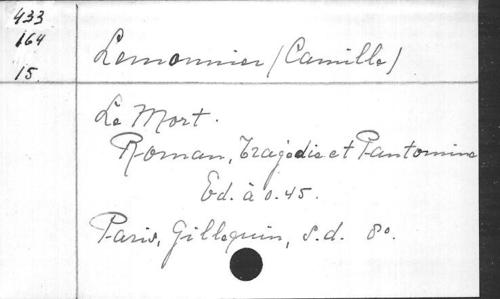 433
164
15.
Lemonnier (Camille)
Le Mort.
Roman, Tragédie et Pantomime
Ed. à 0.45.
Paris, Gillequin, s.d. 8o.